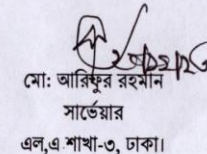 মো: আরিফুর রহমান
সার্ভেয়ার
এল,এ শাখা-৩, ঢাকা।